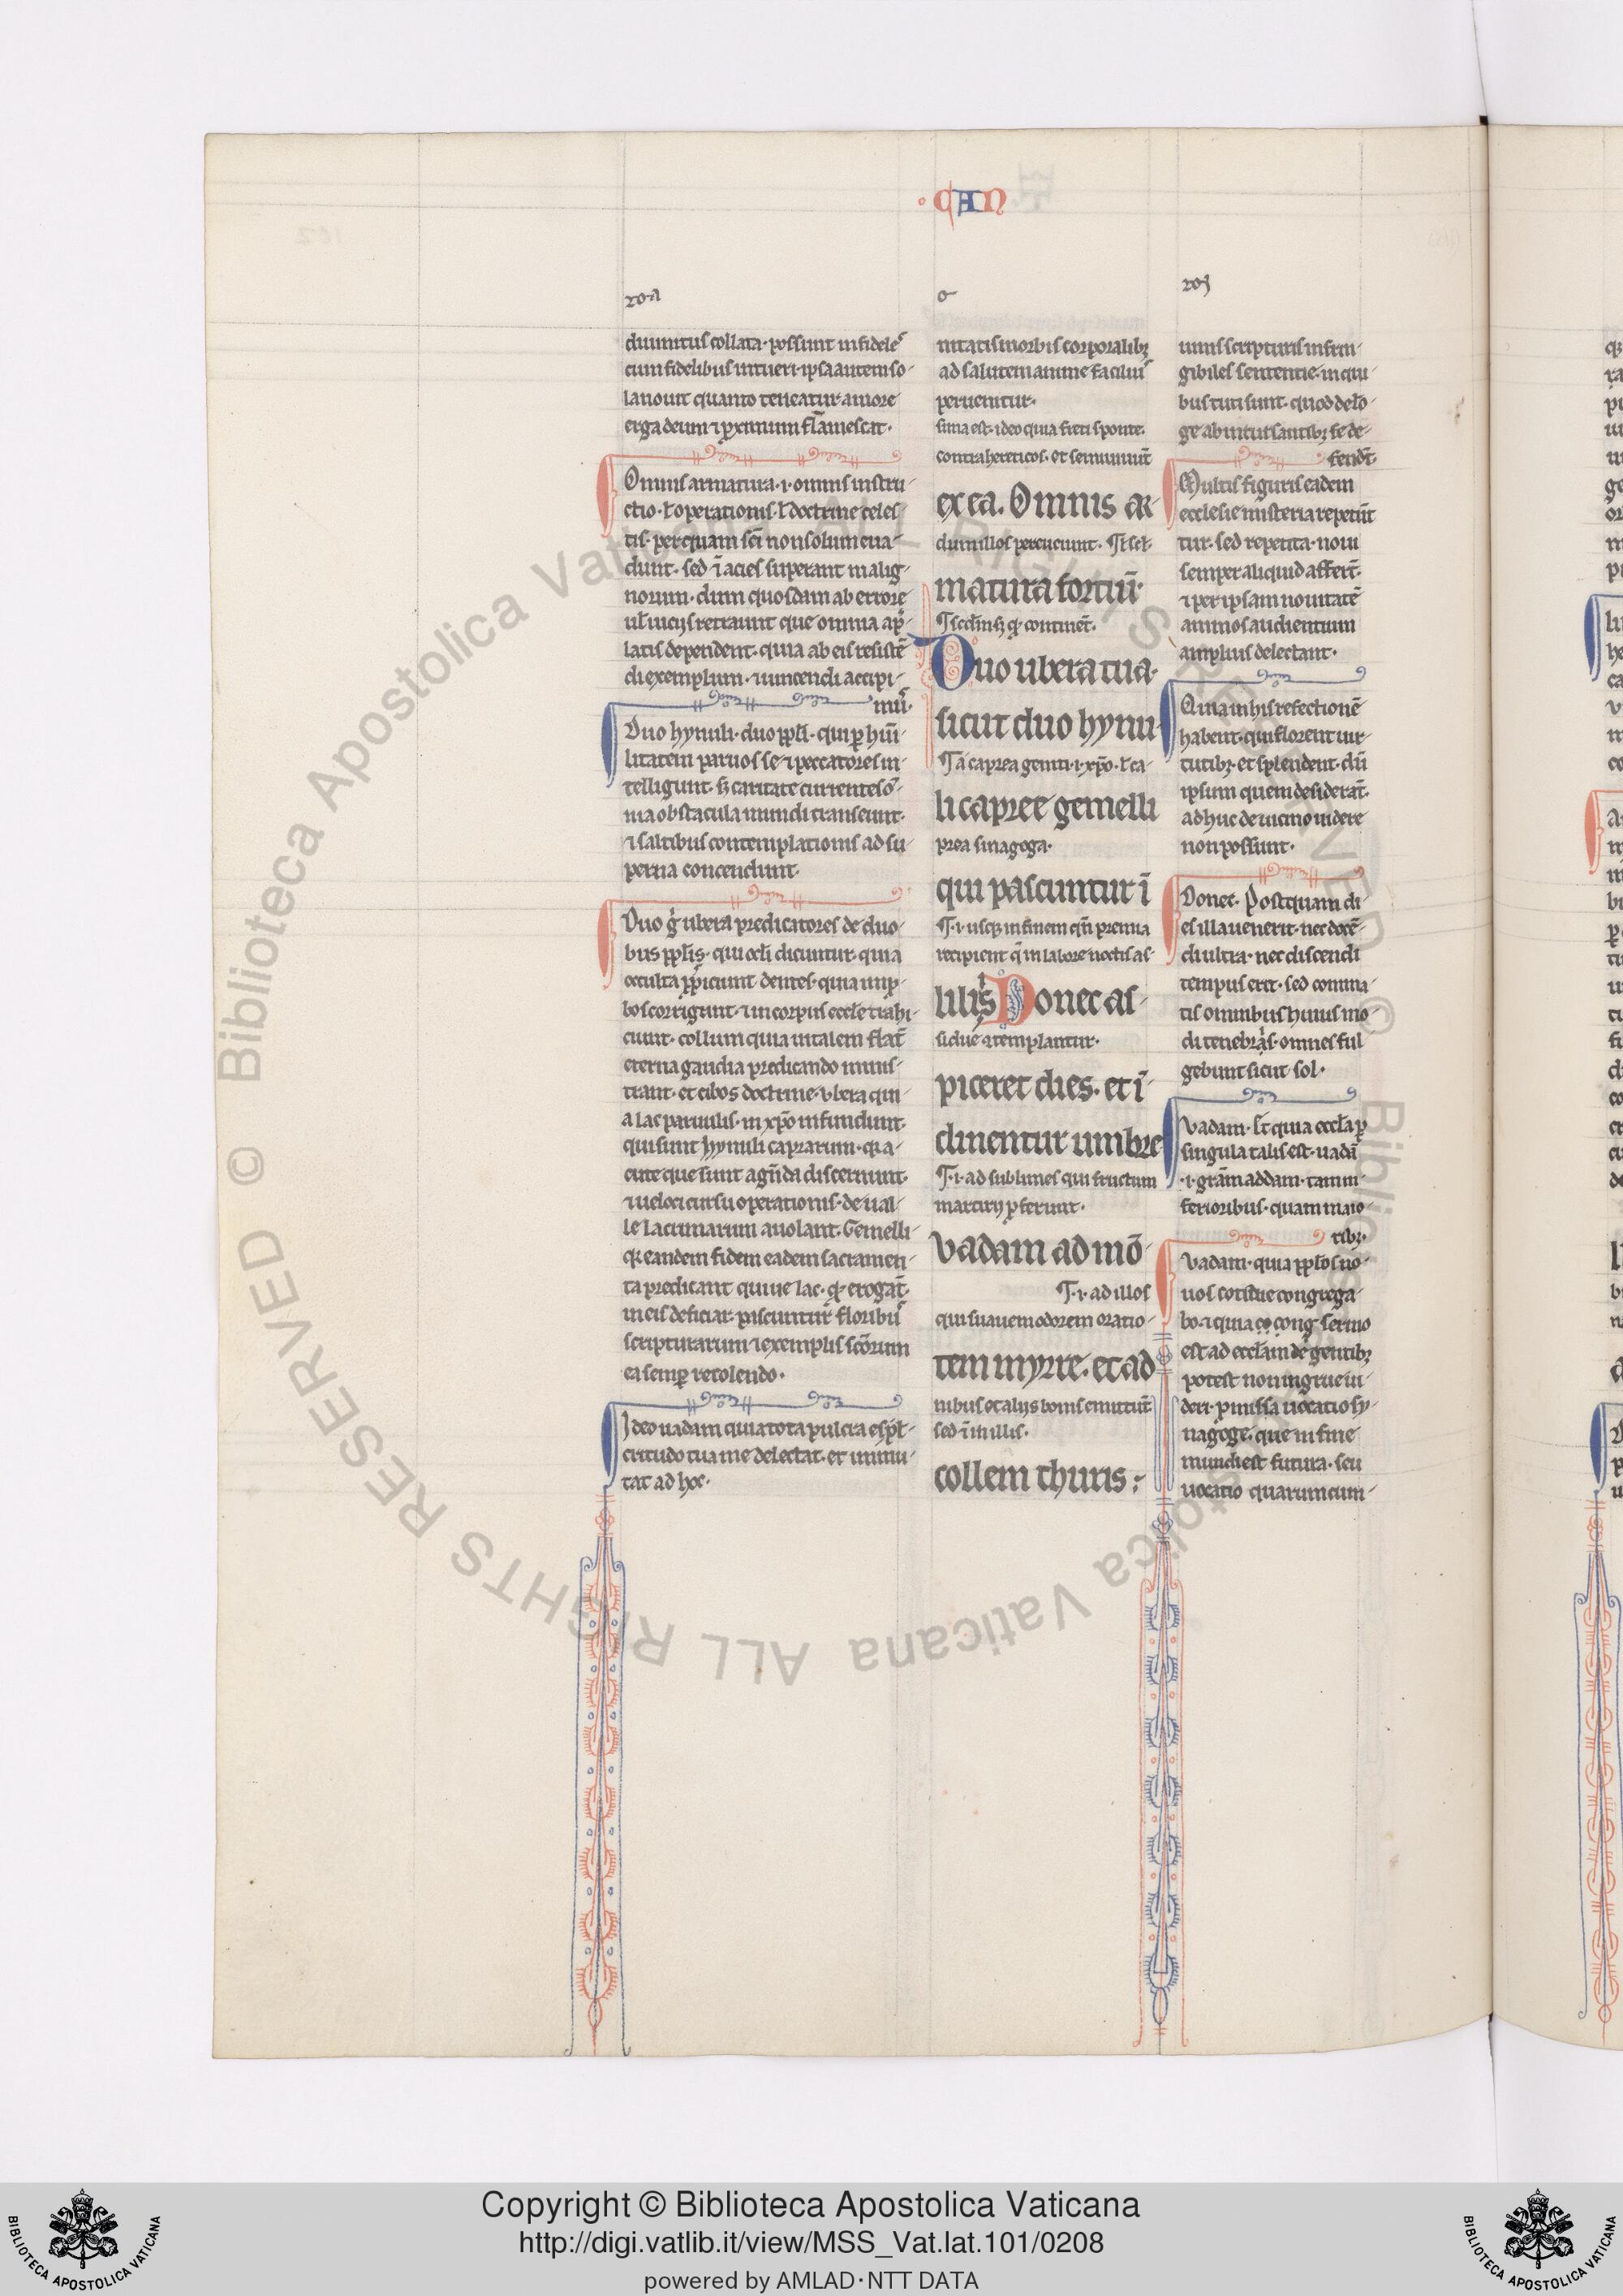 CAN
diuinitus collata· possunt infideles
cum fidelibus intueri· ipsa autem so-
la nouit quanto teneatur amore
erga deum ⁊ proximum flāmescat·
Omnis armatura· i· omnis instru-
ctio· ł operationis· ł doctrine celes-
tis· per quam sc̄i non solum eua-
dunt· sed ī acies superant malig-
norum· dum quosdam ab errore
latis dependent· quia ab eis resistē-
di exemplum· ⁊ uincendi accipi-
mus·
Duo hynuli· duo pp̄li· qui ꝑ hūi-
litatem paruos se ⁊ peccatores in-
telligunt· sꝫ caritate currentes ō-
nia obstacula mundi transeunt·
⁊ saltibus contemplationis ad su-
perna conscendunt·
Duo gͥ ubera predicatores de duo-
bus pp̄lis· qui oc̄li dicuntur· quia
occulta ꝓspiciunt· dentes· quia imꝓ-
bos corrigunt· ⁊ in corpus eccl̄e trahi-
ciunt· collum quia uitalem flat̄
eterna gaudia predicando minis-
trant· et cibos doctrine· vbera qui-
a lac paruulis· in xp̄o infundunt·
qui sunt hynuli caprarum· qr a-
cute que sunt agn̄da discernunt·
⁊ ueloci cursu operationis· de ual-
le lacrimarum auolant· Gemelli
qr eandem fidem eadem sacramen-
ta predicant
in eis deficiat· pascuntur floribus
scripturarum ⁊ exemplis sc̄orum
ea semꝑ recolendo·
Ideo uadam quia tota pulcra es· pl̄-
critudo tua me delectat· et inuiu-
tat ad hoc·
nitatis morbis corporalibꝫ
ad salutem anime facilius
peruenitur·
sima est· ideo quia freti sponte·
contra hereticos· et se muniunt
ex ea. Omnis ar-
dum illos percutiunt·
matura fortiū·
Duo ubera tua·
sicut duo hynu-
¶ a caprea geniti· i· xp̄o· ł ca-
li capree gemelli
prea sinagoga·
qui pascuntur ī
¶ · i· usqꝫ in finem qn̄ premia
recipient q̄ in labore noctis as-
liliis Donec as-
sidue ꝯtemplantur·
piceret dies· et ī-
clinentur umbre
¶ · i· ad sublimes qui fructum
martirij ꝑferunt·
Vadam ad mō-
¶ · i· ad illos
qui suauem odorem oratio-
tem myrre· et ad
nibus et alijs bonis emittūt
sed ī illis·
collem thuris :·
uinis scripturis infran-
gibiles sententie· in qui-
bus tuti sunt· quod de lō-
ge ab intursantibꝫ se de-
fendt̄·
Multis figuris eadem
ecclesie misteria repetūt
tur· sed repetita· noui
semper aliquid affert·
⁊ per ipsam nouitatē
animos audientium
amplius delectant·
Quia in his refectionē
habent· qui florent uir-
tutibꝫ· et splendent· dū
ipsum quem desiderat̄·
adhuc de uicino uidere
non possunt·
Donec· Postquam di-
es illa uenerit· nec docē-
di ultra· nec discendi
tempus erit· sed comma-
tis omnibus huius mō-
di tenebris· omnes ful-
gebunt sicut sol·
Vadam· ł quia eccl̄a ꝑ
singula talis est· uadā
·i· gr̄am addam· tam in-
ferioribus· quam maio-
ribꝫ·
Vadam· quia pp̄los no-
uos cotidie congrega-
bo· ⁊ quia
est ad eccl̄am de gentibꝫ
potest non ingrue ui-
deri· ꝓmissa uocatio sy-
nagoge· que in fine
mundi est futura· seu
uocatio quarumcum-
Copyright © Biblioteca Apostolica Vaticana
http://digi.vatlib.it/view/MSS_Vat.lat.101/0208
powered by AMLAD·NTT DATA